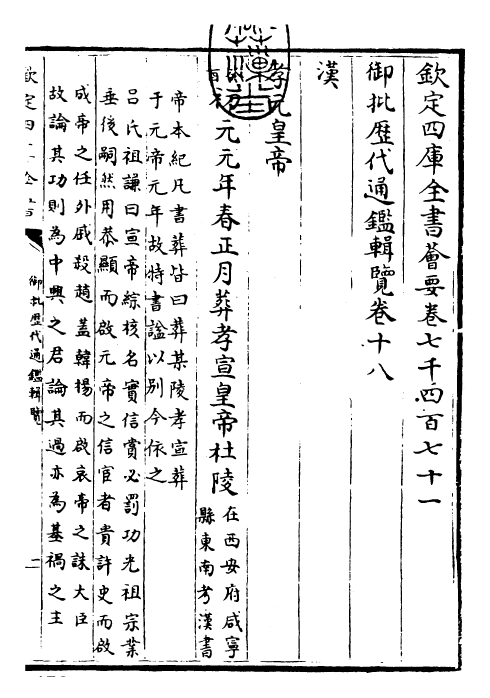 欽定四庫全書薈要卷七千四百七十一
御批歷代通鑑輯覽卷十八
漢
孝元皇帝
初元元年春正月葬孝宣皇帝杜陵
在西安府咸寧
縣東南考漢書
帝本紀凡書葬皆曰葬某陵孝宣葬
于元帝元年故特書諡以别今依之
呂氏祖謙曰宣帝綜核名實信賞必罰功光祖宗業
垂後嗣然用恭顯而啟元帝之信宦者貴許史而啟
成帝之任外戚殺趙蓋韓楊而啟哀帝之誅大臣
故論其功則為中興之君論其過亦為基禍之主
欽定四庫全書
御批歷代通鑑輯覽
二